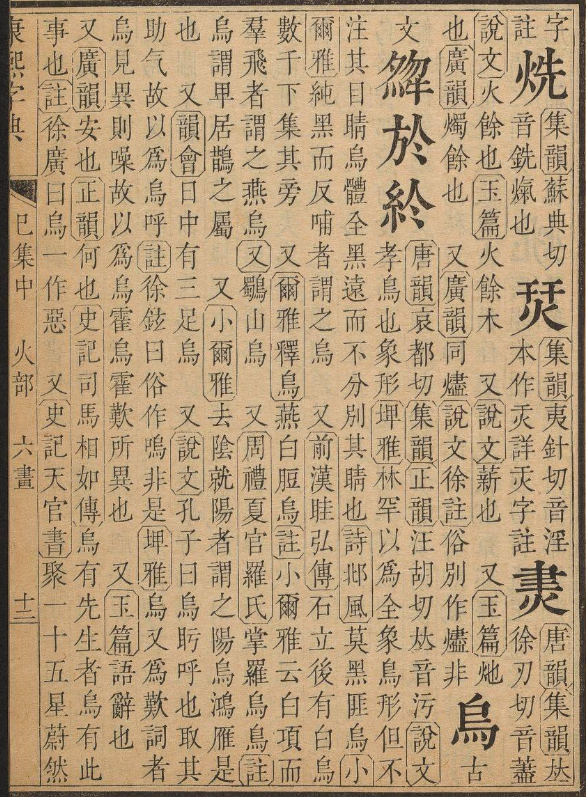 字
註
烍
集韻蘇典切
音銑爊也
烎
集韻夷針切音淫
本作詳字註
㶳
唐韻集韻𠀤
徐刃切音藎
說文火餘也玉篇火餘木　又說文薪也　又玉篇灺也
也廣韻燭餘也　又廣韻同燼說文徐註俗別作燼非
烏
古
文
於
唐韻哀都切集韻正韻汪胡切𠀤音污說文
孝鳥也象形埤雅林罕以爲全象鳥形但不
注其目睛烏體全黑遠而不分別其睛也詩邶風莫黑匪烏小
爾雅純黑而反哺者謂之烏　又前漢眭弘傳石立後有白烏
數千下集其旁　又爾雅釋鳥燕白脰烏註小爾雅云白項而
羣飛者謂之燕烏　又鸀山烏　又周禮夏官羅氏掌羅烏鳥註
烏謂甲居鵲之屬　又小爾雅去陰就陽者謂之陽烏鴻雁是
也　又韻會日中有三足烏　又說文孔子曰烏盱呼也取其
助气故以爲烏呼註徐鉉曰俗作嗚非是埤雅烏又爲歎詞者
烏見異則噪故以爲烏霍烏霍歎所異也　又玉篇語辭也
又廣韻安也正韻何也史記司馬相如傳烏有先生者烏有此
事也註徐廣曰烏一作惡　又史記天官書聚一十五星蔚然
康熙字典　巳集中　火部　六畫　十三